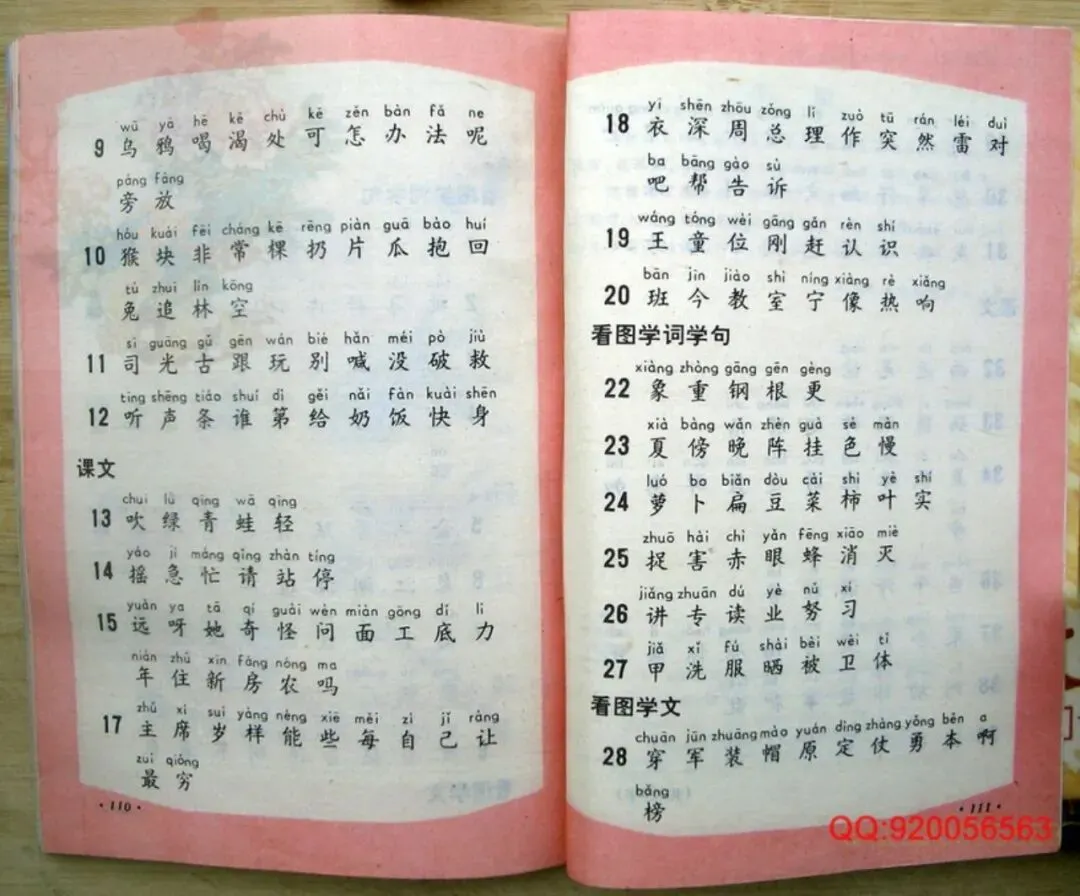 wū yā hē kě chù kě zěn bàn fǎ ne
9 乌 鸦 喝 渴 处 可 怎 办 法 呢
páng fàng
旁 放
hóu kuài fēi cháng kē rēng piàn guā bào huí
10 猴 块 非 常 棵 扔 片 瓜 抱 回
tù zhuī lín kōng
兔 追 林 空
sī guāng gǔ gēn wán bié hǎn méi pò jiù
11 司 光 古 跟 玩 别 喊 没 破 救
tīng shēng tiáo shuí dì gěi nǎi fàn kuài shēn
12 听 声 条 谁 第 给 奶 饭 快 身
课文
chuī lǜ qīng wā qīng
13 吹 绿 青 蛙 轻
yáo jí máng qǐng zhàn tíng
14 摇 急 忙 请 站 停
yuǎn ya tā qí guài wèn miàn gōng dǐ lì
15 远 呀 她 奇 怪 问 面 工 底 力
nián zhù xīn fáng nóng ma
年 住 新 房 农 吗
zhǔ xí suì yàng néng xiē měi zì jǐ ràng
17 主 席 岁 样 能 些 每 自 己 让
zuì qióng
最 穷
·110·
yī shēn zhōu zǒng lǐ zuò tū rán léi duì
18 衣 深 周 总 理 作 突 然 雷 对
ba bāng gào sù
吧 帮 告 诉
wáng tóng wèi gāng gǎn rèn shí
19 王 童 位 刚 赶 认 识
bān jīn jiào shì níng xiàng rè xiǎng
20 班 今 教 室 宁 像 热 响
看图学词学句
xiàng zhòng gāng gēn gèng
22 象 重 钢 根 更
xià bàng wǎn zhèn guà sè màn
23 夏 傍 晚 阵 挂 色 慢
luó bo biǎn dòu cài shì yè shí
24 萝 卜 扁 豆 菜 柿 叶 实
zhuō hài chì yǎn fēng xiāo miè
25 捉 害 赤 眼 蜂 消 灭
jiǎng zhuān dú yè nǔ xí
26 讲 专 读 业 努 习
jiǎ xǐ fú shài bèi wèi tǐ
27 甲 洗 服 晒 被 卫 体
看图学文
chuān jūn zhuāng mào yuán dìng zhàng yǒng běn a
28 穿 军 装 帽 原 定 仗 勇 本 啊
bǎng
榜
·111·
QQ:920056563